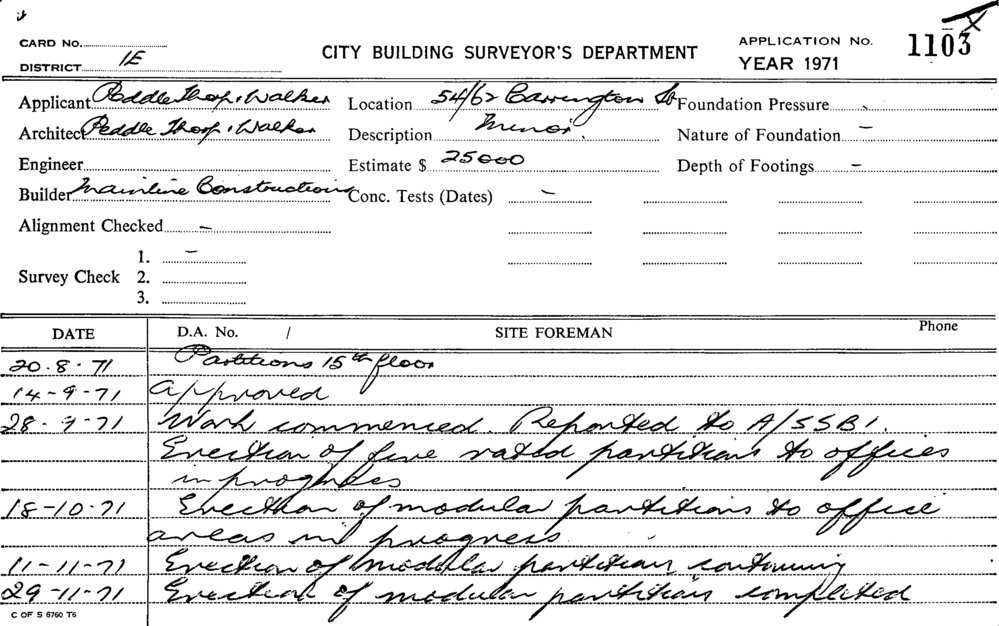 CARD No.
DISTRICT 1E
CITY BUILDING SURVEYOR'S DEPARTMENT
APPLICATION No. 1103
YEAR 1971
Applicant Peddle Thorp & Walker Location 54/62 Carrington St Foundation Pressure -
Architect Peddle Thorp & Walker Description Minor. Nature of Foundation -
Engineer Estimate $ 25000 Depth of Footings -
Builder Mainline Constructions Conc. Tests (Dates) -
Alignment Checked -
Survey Check 1. -
2.
3.
DATE D.A. No. / SITE FOREMAN Phone
20.8.71 Partitions 15th floor
14-9-71 Approved
28-9-71 Work commenced. Reported to A/SSBI.
Erection of fire rated partitions to offices
in progress
18-10-71 Erection of modular partitions to office
areas in progress
11-11-71 Erection of modular partitions continuing
29-11-71 Erection of modular partitions completed
C OF S 6760 T6